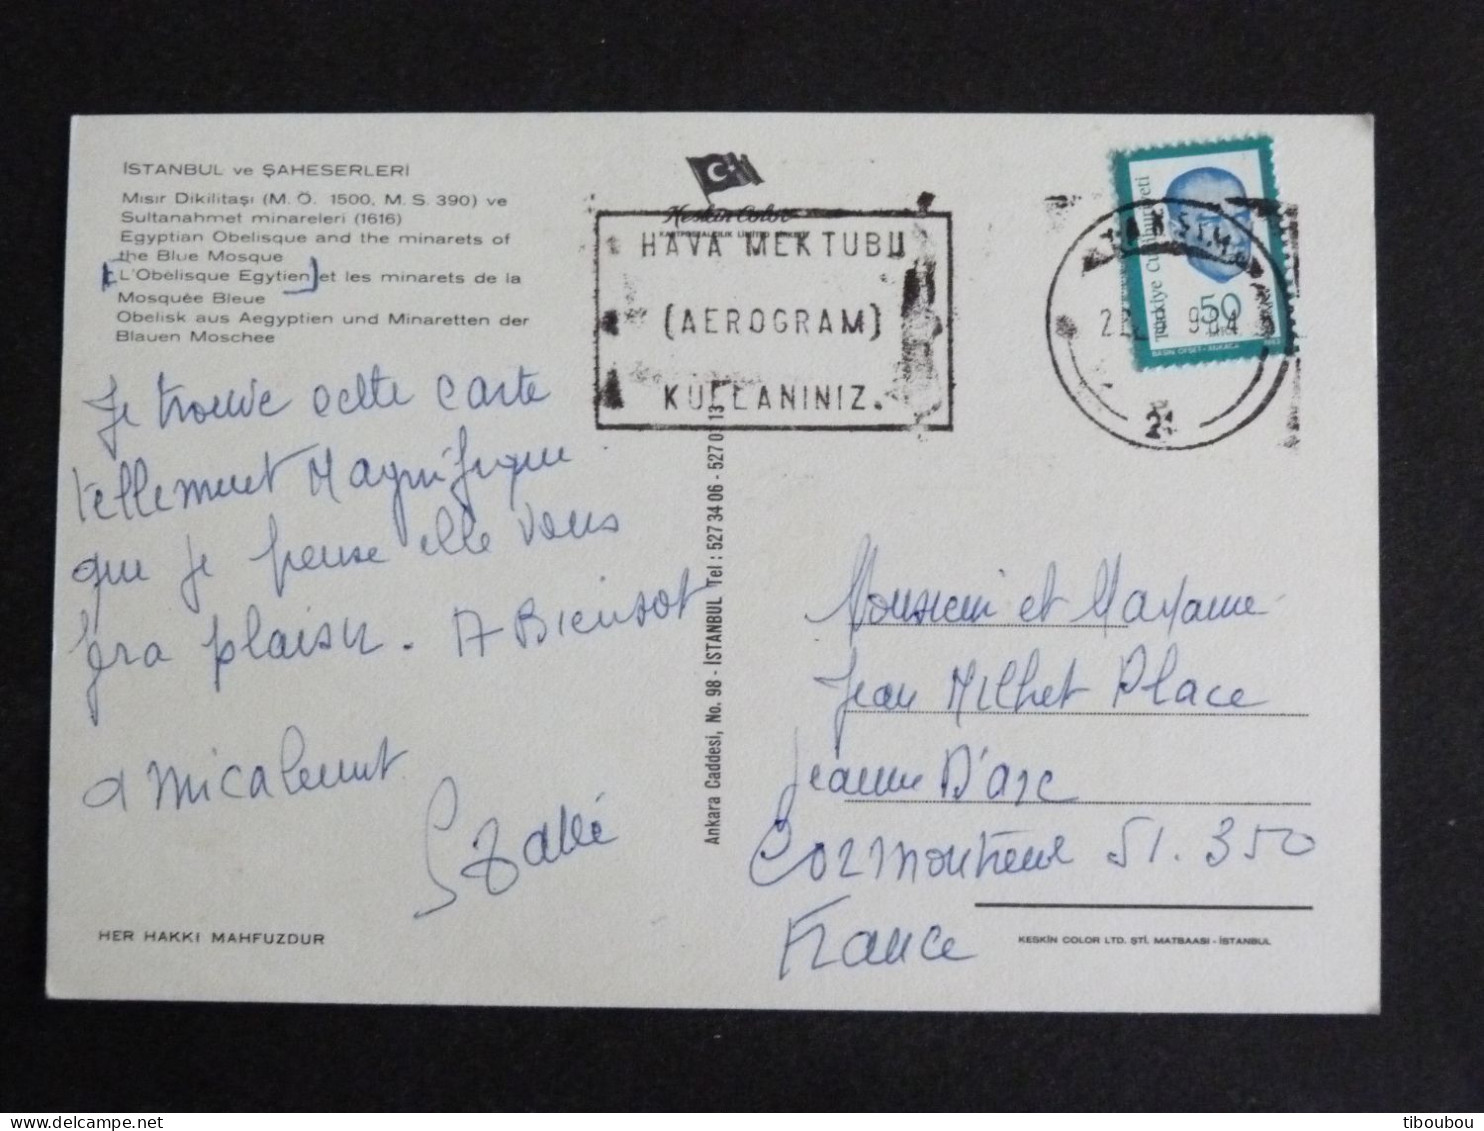 İSTANBUL ve ŞAHESERLERİ
Mısır Dikilitaşı (M. Ö. 1500, M. S. 390) ve
Sultanahmet minareleri (1616)
Egyptian Obelisque and the minarets of
the Blue Mosque
L'Obélisque Egytien et les minarets de la
Mosquée Bleue
Obelisk aus Aegyptien und Minaretten der
Blauen Moschee
Keskin Color
HAVA MEKTUBU
(AEROGRAM)
KULLANINIZ.
TAKSİM
21
Türkiye Cumhuriyeti
50
LİRA
Je trouve cette carte
tellement Magnifique
que je pense elle vous
fera plaisir. A Bientot
amicalement
HER HAKKI MAHFUZDUR
Ankara Caddesi, No. 98 - İSTANBUL Tel : 527 34 06 - 527 07 13
Monsieur et Madame
Jean Milhet Place
Jeanne D'arc
Cormontreuil 51.350
France
KESKİN COLOR LTD. ŞTİ. MATBAASI - İSTANBUL
tiboubou